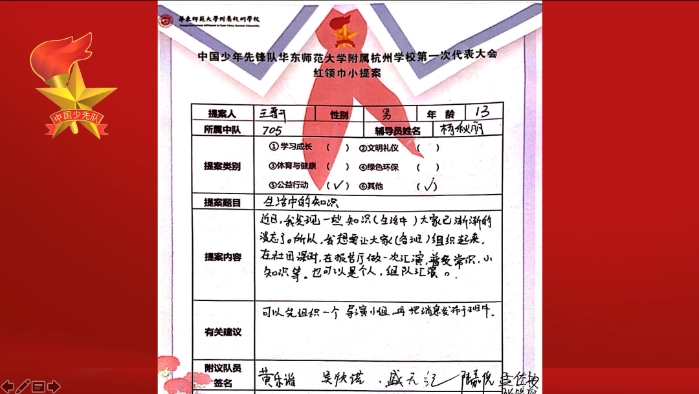 华东师范大学附属杭州学校
中国少年先锋队华东师范大学附属杭州学校第一次代表大会
红领巾小提案
中国少先队
提案人 性别 男 年 龄 13
所属中队 705 辅导员姓名 杨秋丽
提案类别
①学习成长 ( ) ②文明礼仪 ( )
③体育与健康 ( ) ④绿色环保 ( )
⑤公益行动 (✓) ⑥其他 (✓)
提案题目 生活中的知识
提案内容
近日,我发现一些知识(生活中)大家已渐渐的
淡忘了。所以,我想要让大家(各班)组织起来,
在社团课时,在报告厅做一次汇演,普及常识,小
知识等。也可以是个人,组队汇演。
有关建议
可以先组织一个导演小组,再把消息发布于班中.
附议队员
签名
黄乐 吴欣诺